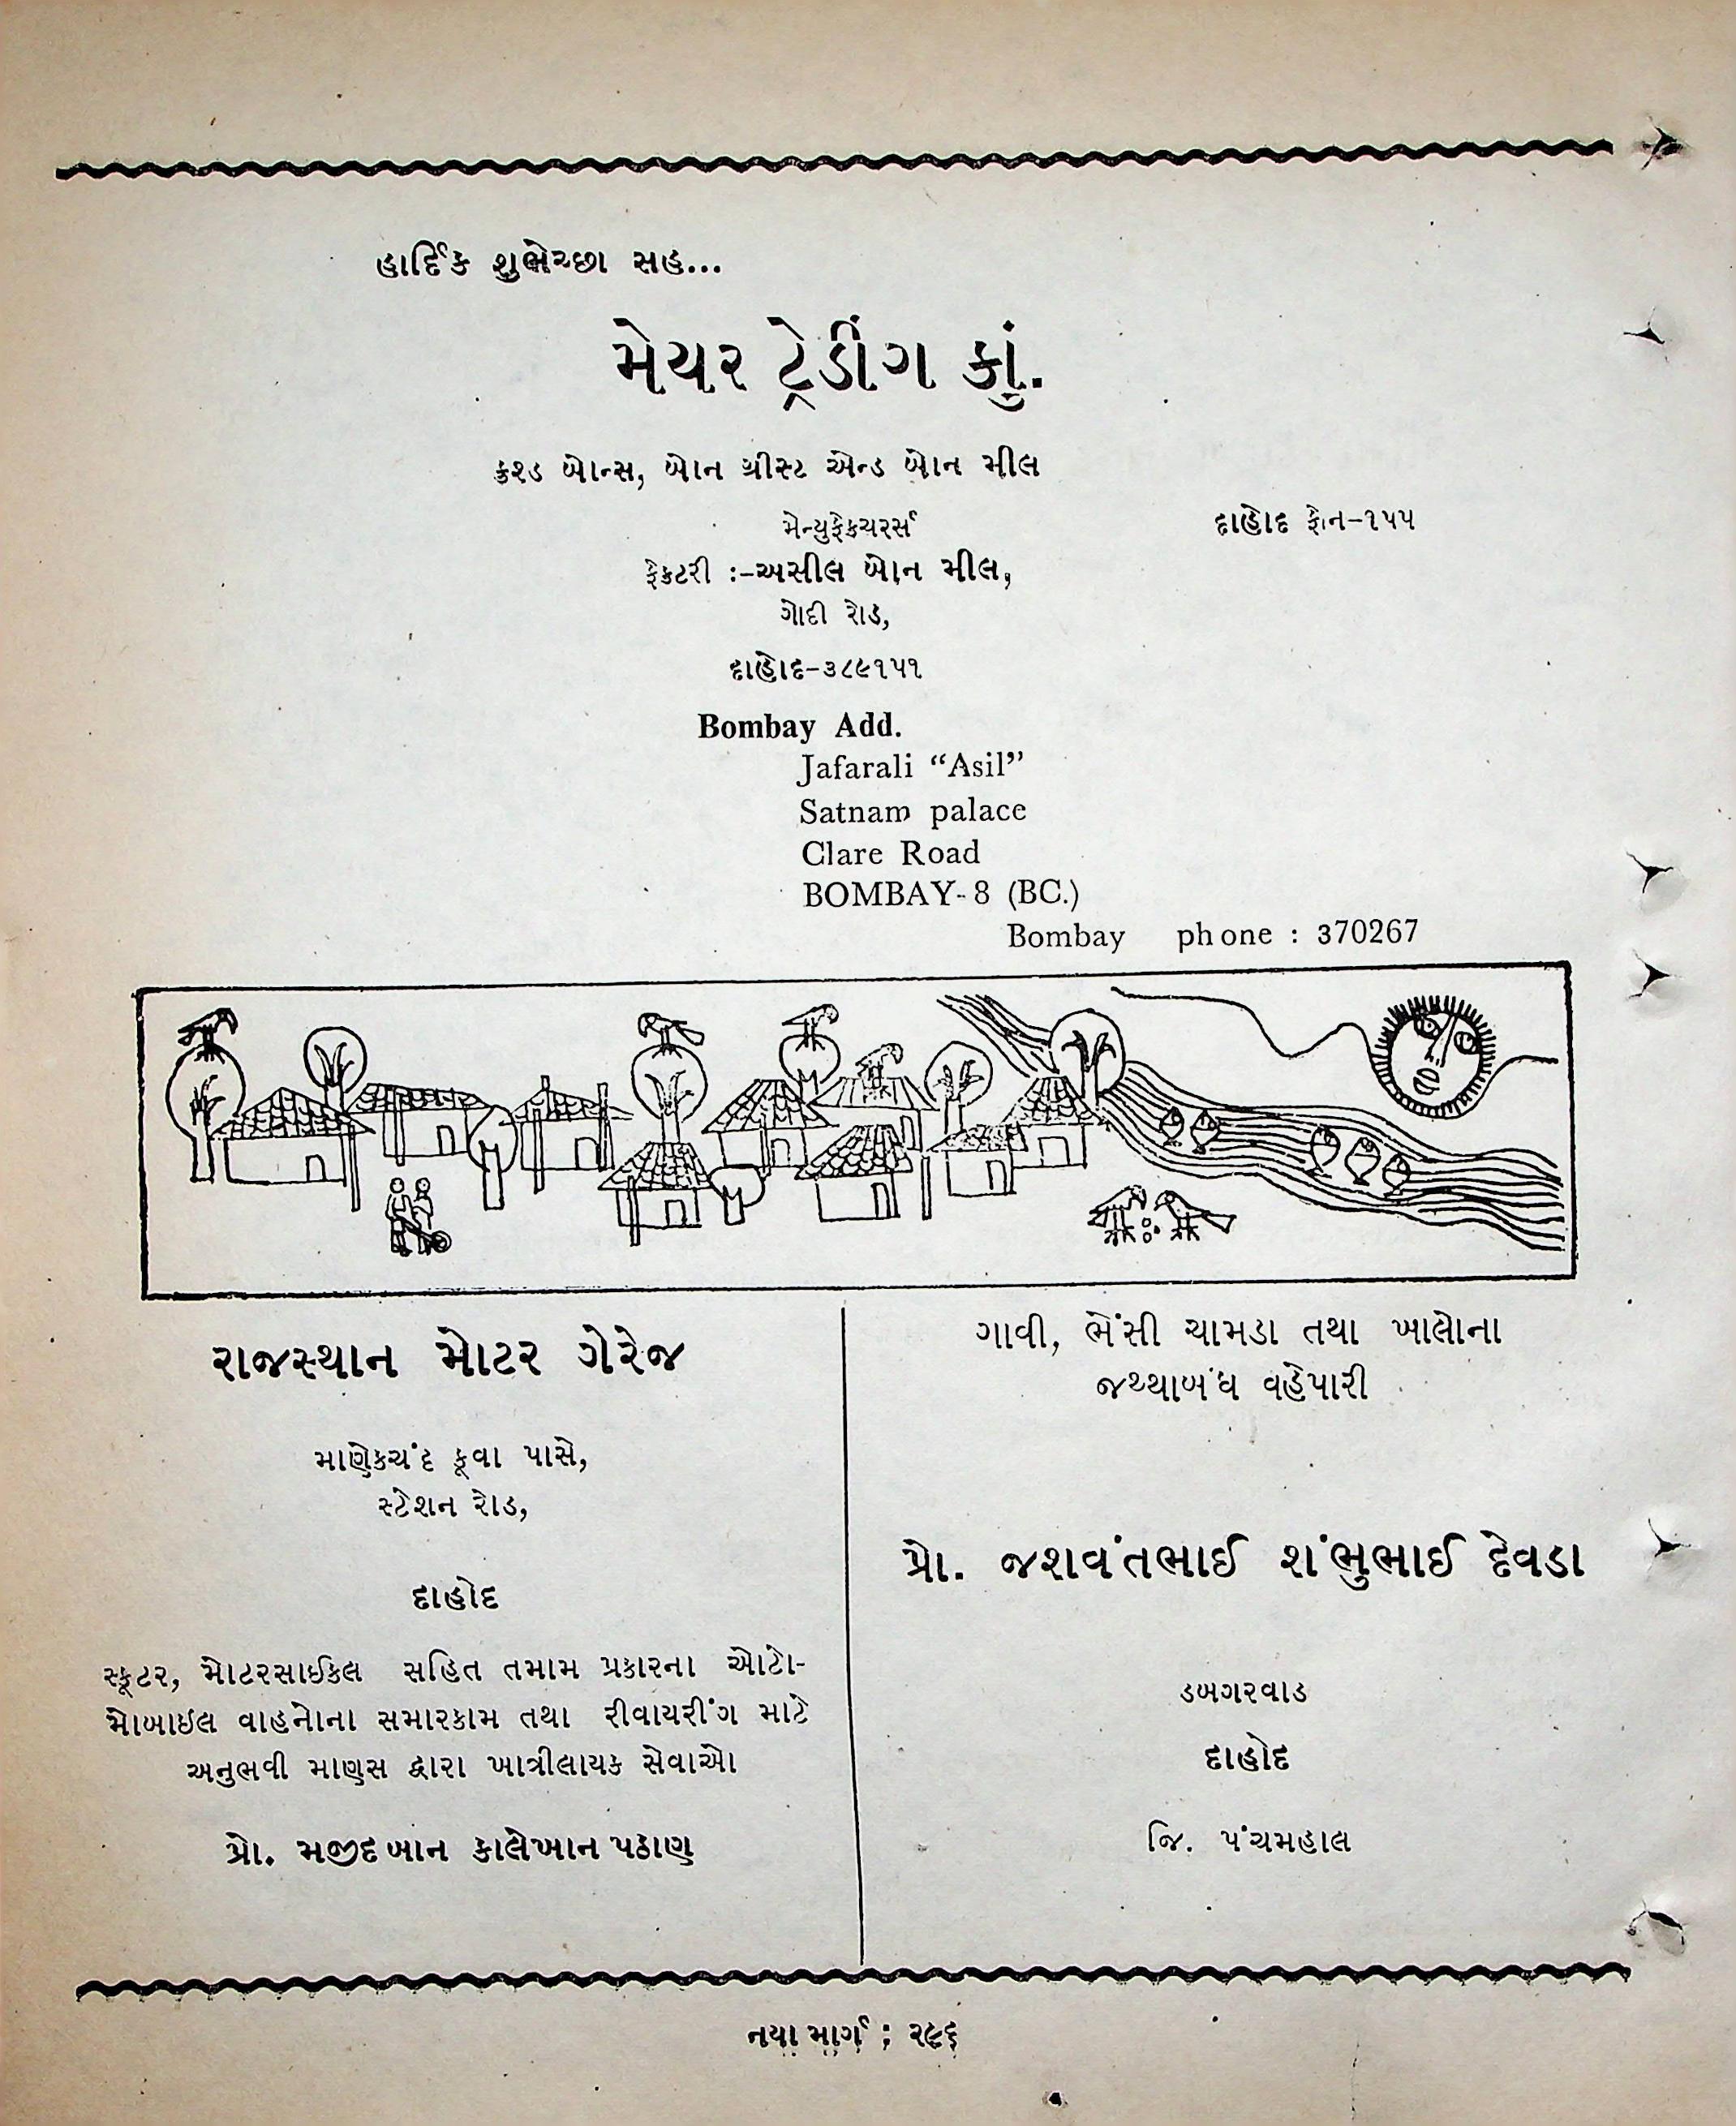 હાર્દિક શુભેચ્છા સહ...
મેયર ટ્રેડીંગ કાું.
ક્રશ્ડ બોન્સ, બોન ગ્રીસ્ટ એન્ડ બોન મીલ
મેન્યુફેકચરર્સ
દાહોદ ફોન-૧૫૫
ફેકટરી :-અસીલ બોન મીલ,
ગોદી રોડ,
દાહોદ-૩૮૯૧૫૧
Bombay Add.
Jafarali “Asil”
Satnam palace
Clare Road
BOMBAY-8 (BC.)
Bombay phone : 370267
રાજસ્થાન મોટર ગેરેજ
માણેકચંદ કૂવા પાસે,
સ્ટેશન રોડ,
દાહોદ
સ્કૂટર, મોટરસાઈકલ સહિત તમામ પ્રકારના ઓટો-
મોબાઈલ વાહનોના સમારકામ તથા રીવાયરીંગ માટે
અનુભવી માણસ દ્વારા ખાત્રીલાયક સેવાઓ
પ્રો. મજીદખાન કાલેખાન પઠાણ
ગાવી, ભેંસી ચામડા તથા ખાલોના
જથ્થાબંધ વહેપારી
પ્રો. જશવંતભાઈ શંભુભાઈ દેવડા
ડબગરવાડ
દાહોદ
જિ. પંચમહાલ
નયા માર્ગ : ૨૯૬